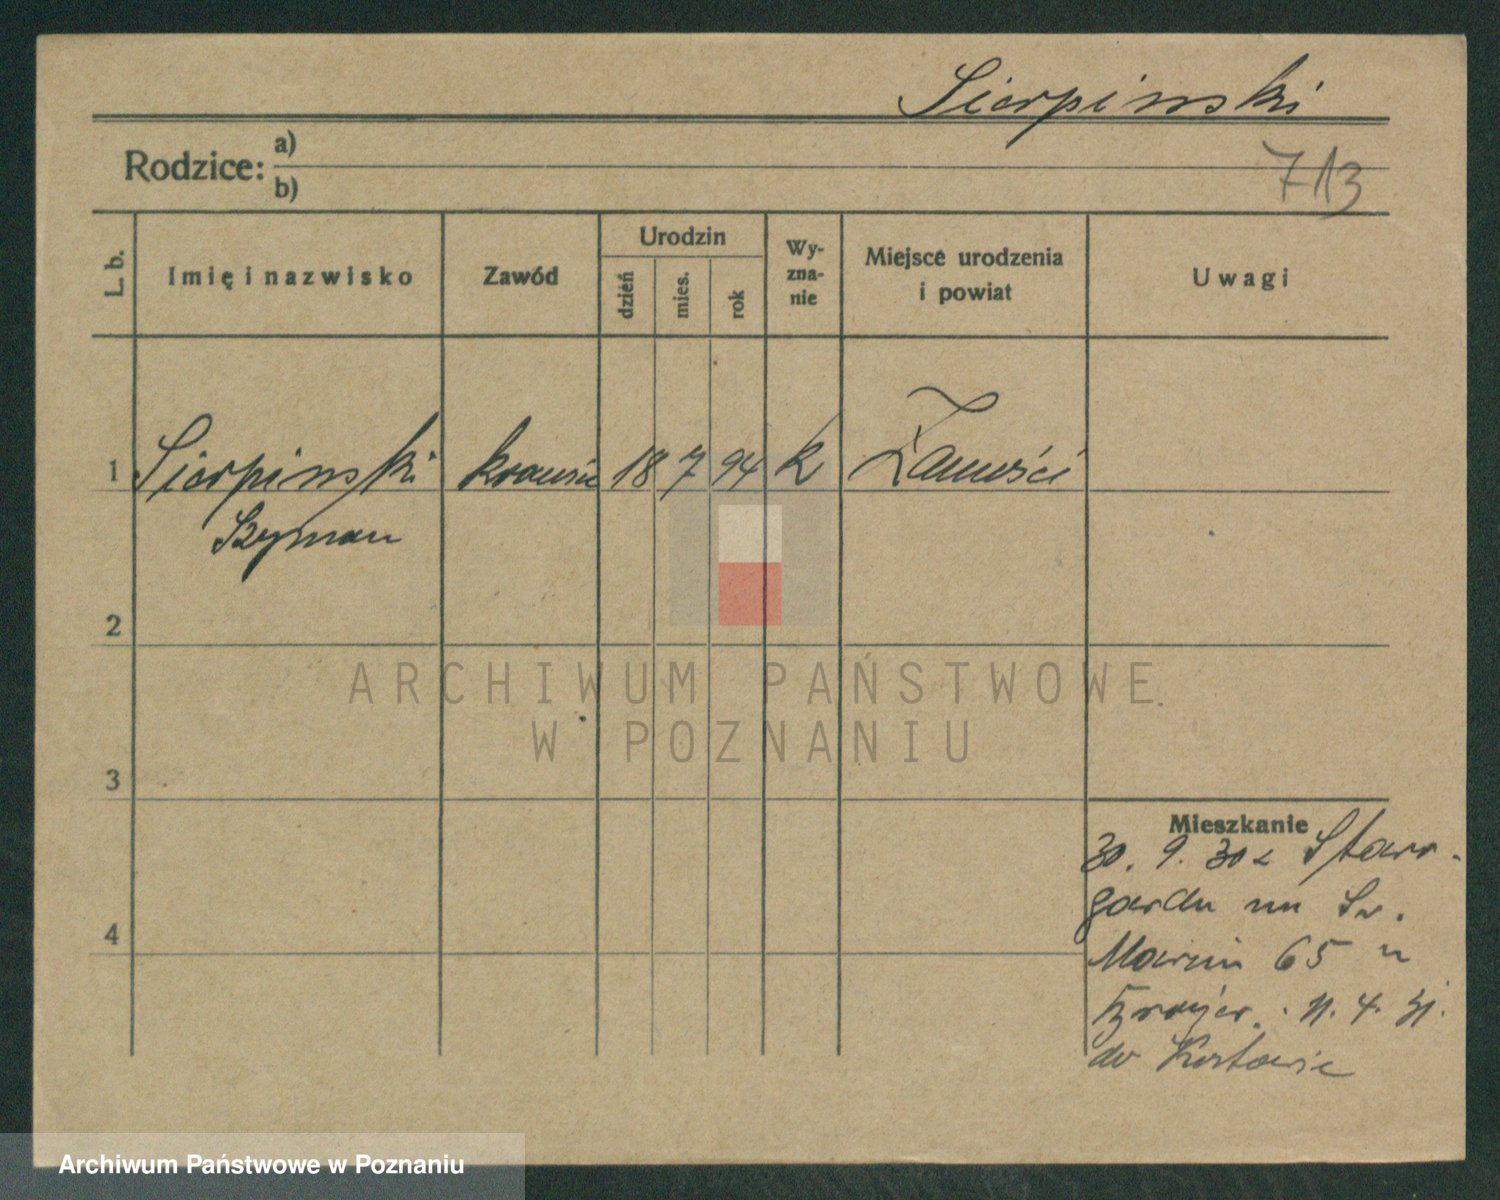 Sierpinski
Rodzice: a)
b)
713
L. b.
Imię i nazwisko
Zawód
Urodzin
dzień
mies.
rok
Wy-
zna-
nie
Miejsce urodzenia
i powiat
Uwagi
1 Sierpinski krawiec 18 7 94 k
Szyman
2
3
4
Mieszkanie
30. 9. 30 z Starr-
gardu na Sw.
Marcin 65 u
11. 4. 31.
do
ARCHIWUM PAŃSTWOWE
W POZNANIU
Archiwum Państwowe w Poznaniu